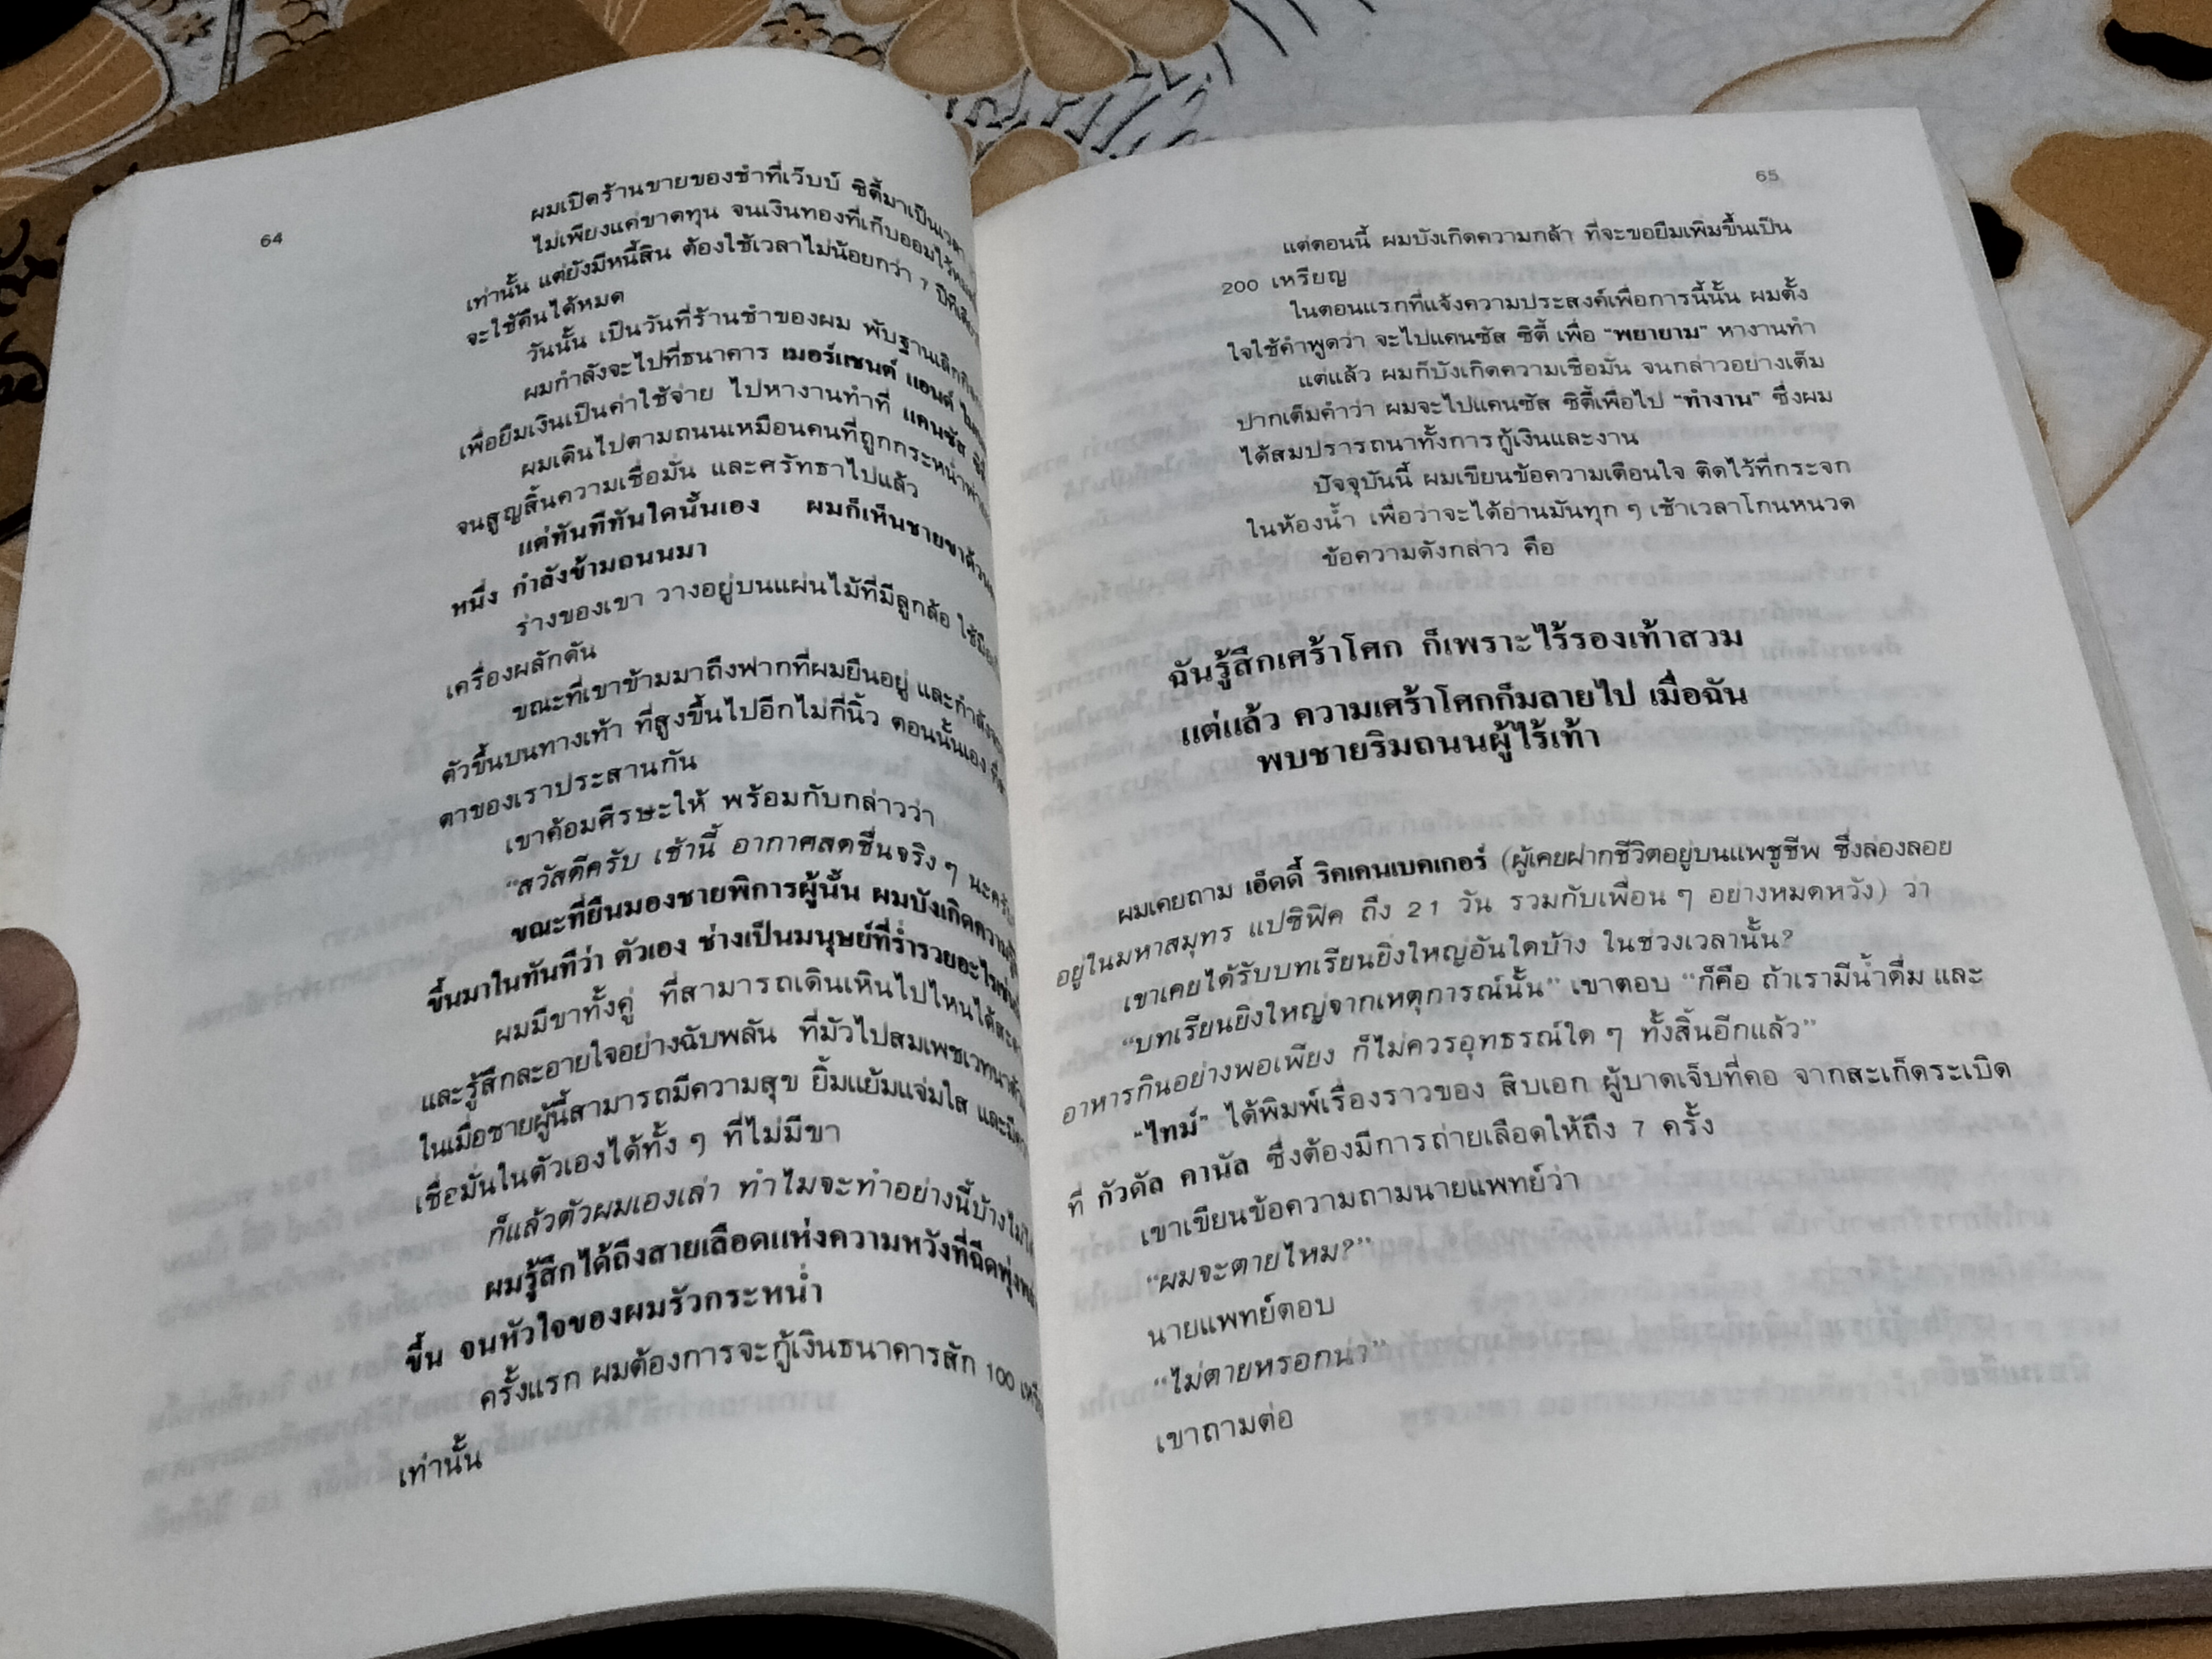 64
ผมเปิดร้านขายของชำที่เว็บบ์ ซิตี้มาเป็นเวลา
ไม่เพียงแค่ขาดทุน จนเงินทองที่เก็บออมไว้หมด
เท่านั้น แต่ยังมีหนี้สิน ต้องใช้เวลาไม่น้อยกว่า 7 ปีทีเดียว
จะใช้คืนได้หมด
วันนั้น เป็นวันที่ร้านชำของผม พับฐานเลิกกิจการ
ผมกำลังจะไปที่ธนาคาร เมอร์แชนต์ แอนด์
เพื่อยืมเงินเป็นค่าใช้จ่าย ไปหางานทำที่ แคนซัส ซิตี้
ผมเดินไปตามถนนเหมือนคนที่ถูกกระหน่ำ
จนสูญสิ้นความเชื่อมั่น และศรัทธาไปแล้ว
แต่ทันทีทันใดนั้นเอง ผมก็เห็นชายขาด้วน
หนึ่ง กำลังข้ามถนนมา
ร่างของเขา วางอยู่บนแผ่นไม้ที่มีลูกล้อ ใช้
เครื่องผลักดัน
ขณะที่เขาข้ามมาถึงฟากที่ผมยืนอยู่ และกำลัง
ตัวขึ้นบนทางเท้า ที่สูงขึ้นไปอีกไม่กี่นิ้ว ตอนนั้นเอง
ตาของเราประสานกัน
เขาค้อมศีรษะให้ พร้อมกับกล่าวว่า
“สวัสดีครับ เช้านี้ อากาศสดชื่นจริง ๆ นะครับ
ขณะที่ยืนมองชายพิการผู้นั้น ผมบังเกิดความ
ขึ้นมาในทันทีว่า ตัวเอง ช่างเป็นมนุษย์ที่ร่ำรวยอะไรเช่น
ผมมีขาทั้งคู่ ที่สามารถเดินเหินไปไหนได้
และรู้สึกละอายใจอย่างฉับพลัน ที่มัวไปสมเพชเวทนา
ในเมื่อชายผู้นี้สามารถมีความสุข ยิ้มแย้มแจ่มใส และ
เชื่อมั่นในตัวเองได้ทั้ง ๆ ที่ไม่มีขา
ก็แล้วตัวผมเองเล่า ทำไมจะทำอย่างนี้บ้างไม่ได้
ผมรู้สึกได้ถึงสายเลือดแห่งความหวังที่ฉีดพุ่ง
ขึ้น จนหัวใจของผมรัวกระหน่ำ
ครั้งแรก ผมต้องการจะกู้เงินธนาคารสัก 100
เท่านั้น
65
แต่ตอนนี้ ผมบังเกิดความกล้า ที่จะขอยืมเพิ่มขึ้นเป็น
200 เหรียญ
ในตอนแรกที่แจ้งความประสงค์เพื่อการนี้นั้น ผมตั้ง
ใจใช้คำพูดว่า จะไปแคนซัส ซิตี้ เพื่อ “พยายาม” หางานทำ
แต่แล้ว ผมก็บังเกิดความเชื่อมั่น จนกล่าวอย่างเต็ม
ปากเต็มคำว่า ผมจะไปแคนซัส ซิตี้เพื่อไป “ทำงาน” ซึ่งผม
ได้สมปรารถนาทั้งการกู้เงินและงาน
ปัจจุบันนี้ ผมเขียนข้อความเตือนใจ ติดไว้ที่กระจก
ในห้องน้ำ เพื่อว่าจะได้อ่านมันทุก ๆ เช้าเวลาโกนหนวด
ข้อความดังกล่าว คือ
ฉันรู้สึกเศร้าโศก ก็เพราะไร้รองเท้าสวม
แต่แล้ว ความเศร้าโศกก็มลายไป เมื่อฉัน
พบชายริมถนนผู้ไร้เท้า
ผมเคยถาม เอ็ดดี้ ริคเคนเบคเกอร์ (ผู้เคยฝากชีวิตอยู่บนแพชูชีพ ซึ่งล่องลอย
อยู่ในมหาสมุทร แปซิฟิค ถึง 21 วัน รวมกับเพื่อน ๆ อย่างหมดหวัง) ว่า
เขาเคยได้รับบทเรียนยิ่งใหญ่อันใดบ้าง ในช่วงเวลานั้น?
“บทเรียนยิ่งใหญ่จากเหตุการณ์นั้น” เขาตอบ “ก็คือ ถ้าเรามีน้ำดื่ม และ
อาหารกินอย่างพอเพียง ก็ไม่ควรอุทธรณ์ใด ๆ ทั้งสิ้นอีกแล้ว”
“ไทม์” ได้พิมพ์เรื่องราวของ สิบเอก ผู้บาดเจ็บที่คอ จากสะเก็ดระเบิด
ที่ กัวดัล คานัล ซึ่งต้องมีการถ่ายเลือดให้ถึง 7 ครั้ง
เขาเขียนข้อความถามนายแพทย์ว่า
“ผมจะตายไหม?”
นายแพทย์ตอบ
“ไม่ตายหรอกน่า”
เขาถามต่อ